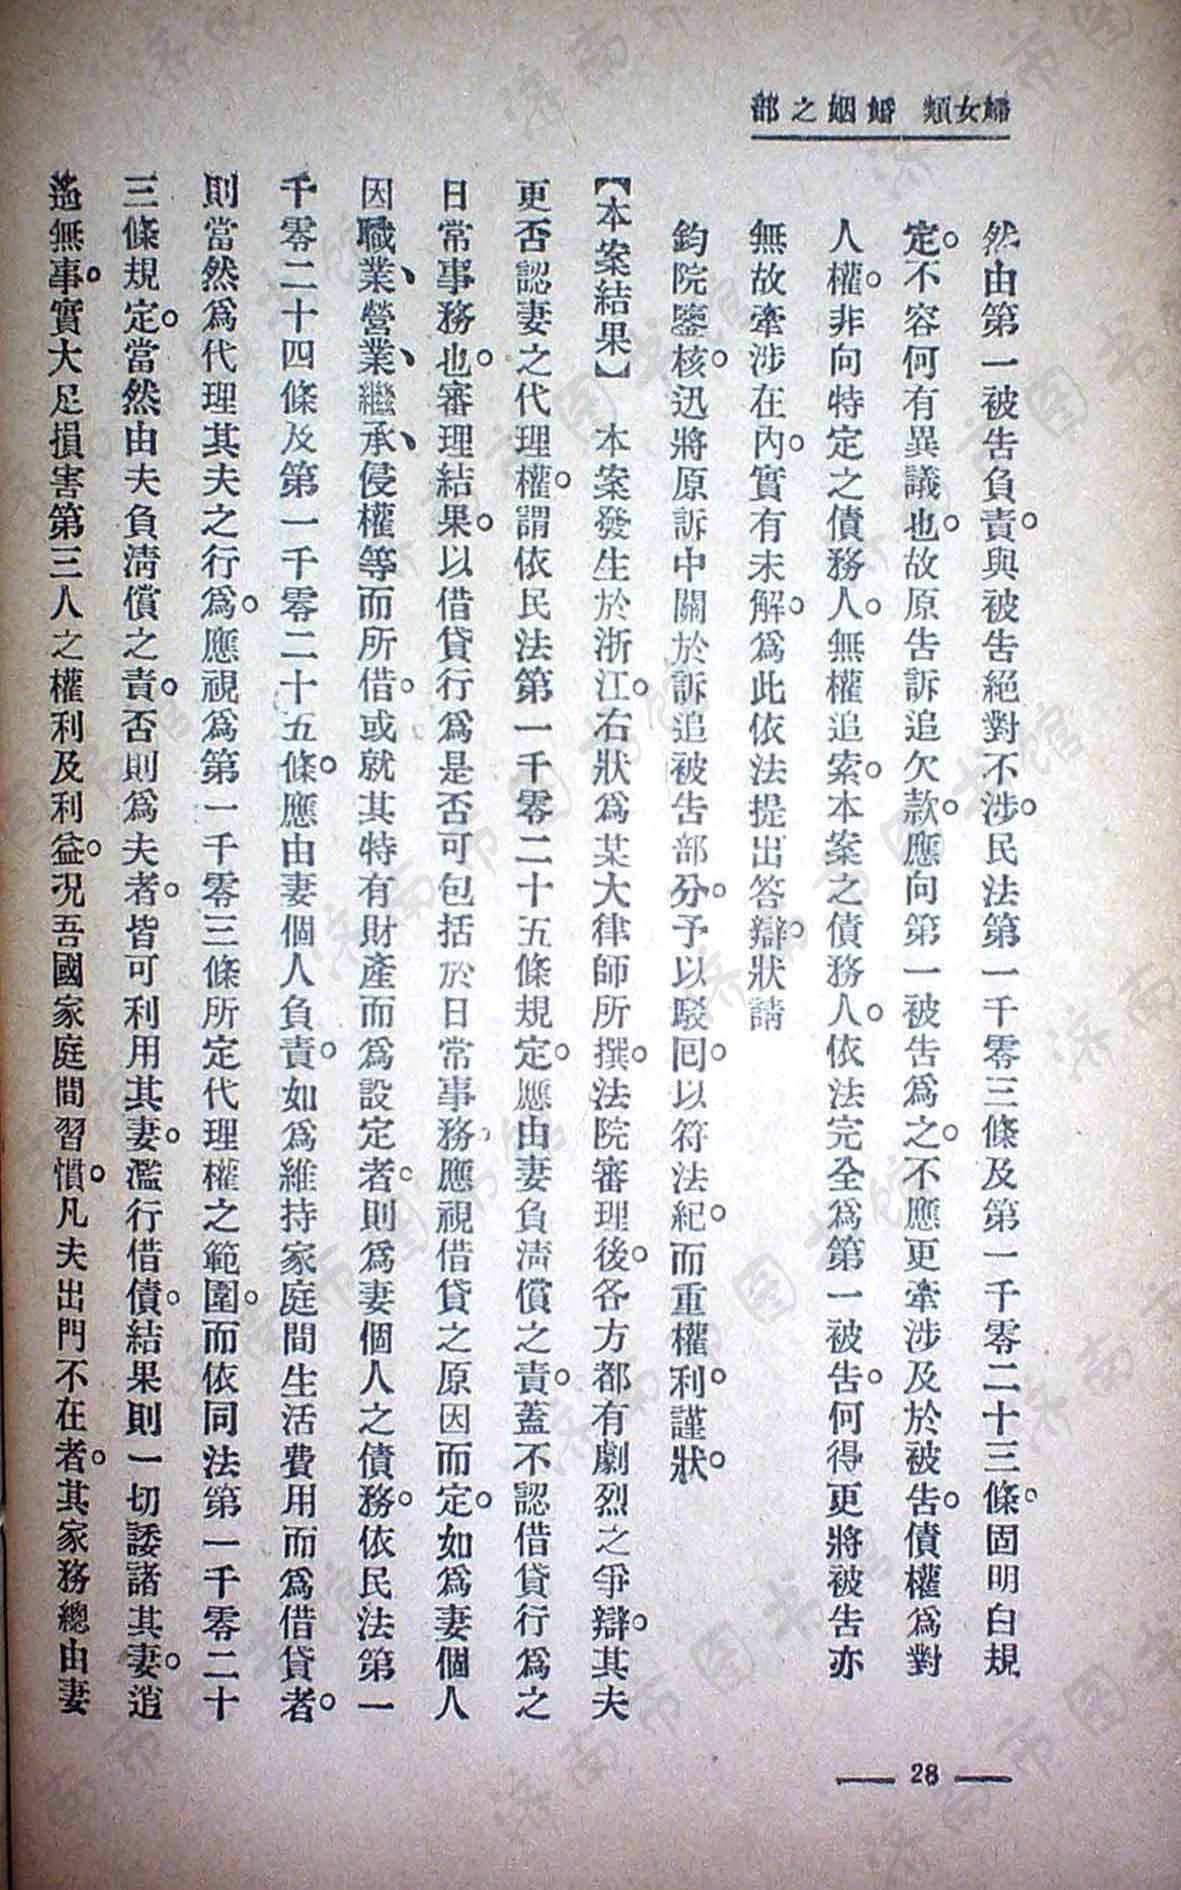 婦女類 婚姻之部
然由第一被告負責。與被告絕對不涉。民法第一千零三條及第一千零二十三條。固明白規
定。不容何有異議也。故原告訴追欠款。應向第一被告爲之。不應更牽涉及於被告。債權爲對
人權。非向特定之債務人。無權追索。本案之債務人。依法完全爲第一被告。何得更將被告亦
無故牽涉在內。實有未解。爲此依法提出答辯。狀請
鈞院鑒核。迅將原訴中關於訴追被告部分。予以駁囘。以符法紀。而重權利。謹狀。
【本案結果】 本案發生於浙江。右狀爲某大律師所撰。法院審理後。各方都有劇烈之爭辯。其夫
更否認妻之代理權。謂依民法第一千零二十五條規定。應由妻負淸償之責。蓋不認借貸行爲之
日常事務也。審理結果。以借貸行爲是否可包括於日常事務。應視借貸之原因而定。如爲妻個人
因職業、營業、繼承、侵權等而所借。或就其特有財產而爲設定者。則爲妻個人之債務。依民法第一
千零二十四條及第一千零二十五條。應由妻個人負責。如爲維持家庭間生活費用而爲借貸者。
則當然爲代理其夫之行爲。應視爲第一千零三條所定代理權之範圍。而依同法第一千零二十
三條規定。當然由夫負淸償之責。否則爲夫者。皆可利用其妻。濫行借債。結果則一切諉諸其妻。逍
遙無事。實大足損害第三人之權利及利益。况吾國家庭間習慣。凡夫出門不在者。其家務總由妻
28
濟南市图书馆